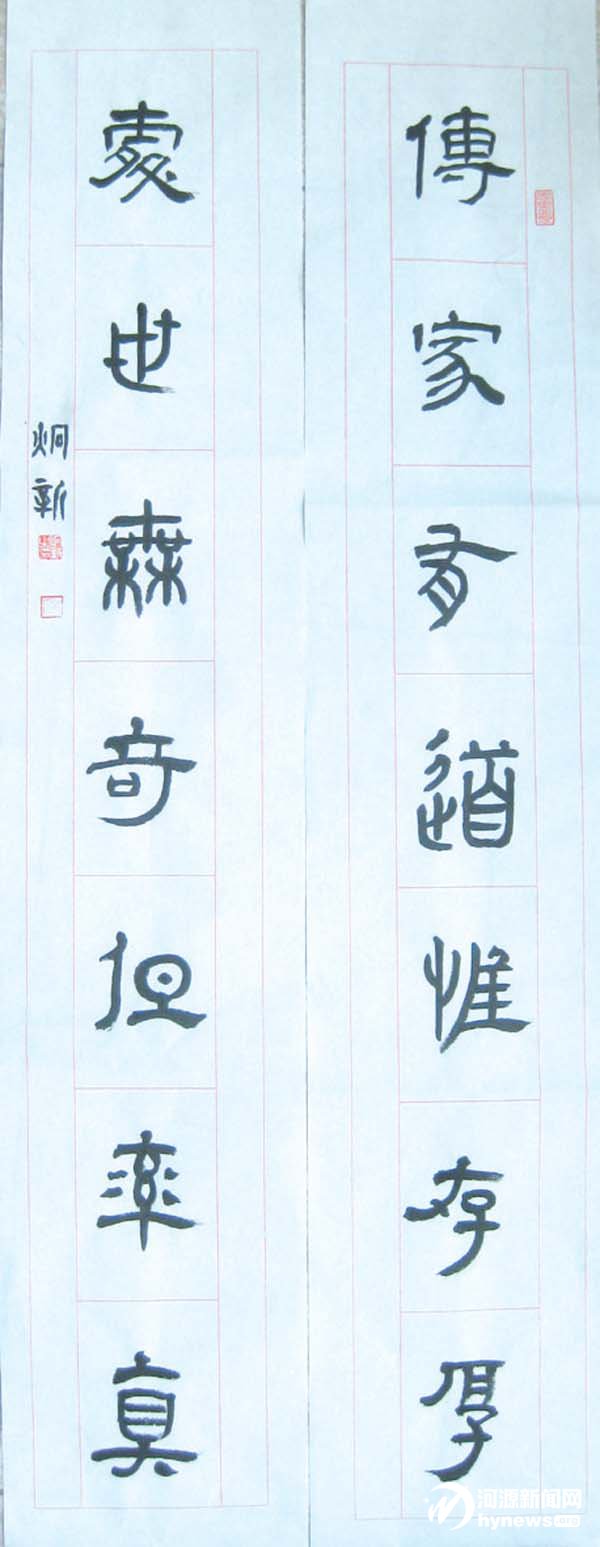 傳家有道惟存厚
處世無奇但率真
炯新
河源新闻网
hynews.org